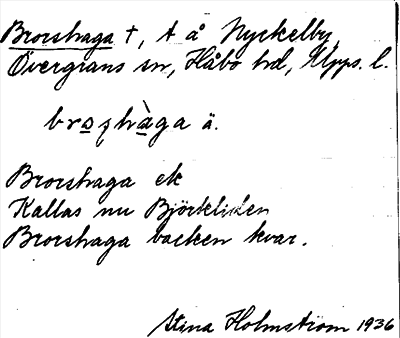 Brorshaga †, t å Nyckelby,
Övergrans sn, Håbo hd, Upps. l.
broshàga ä.
Brorshaga ek
Kallas nu Björkliden
Brorshaga backen kvar.
Stina Holmström 1936